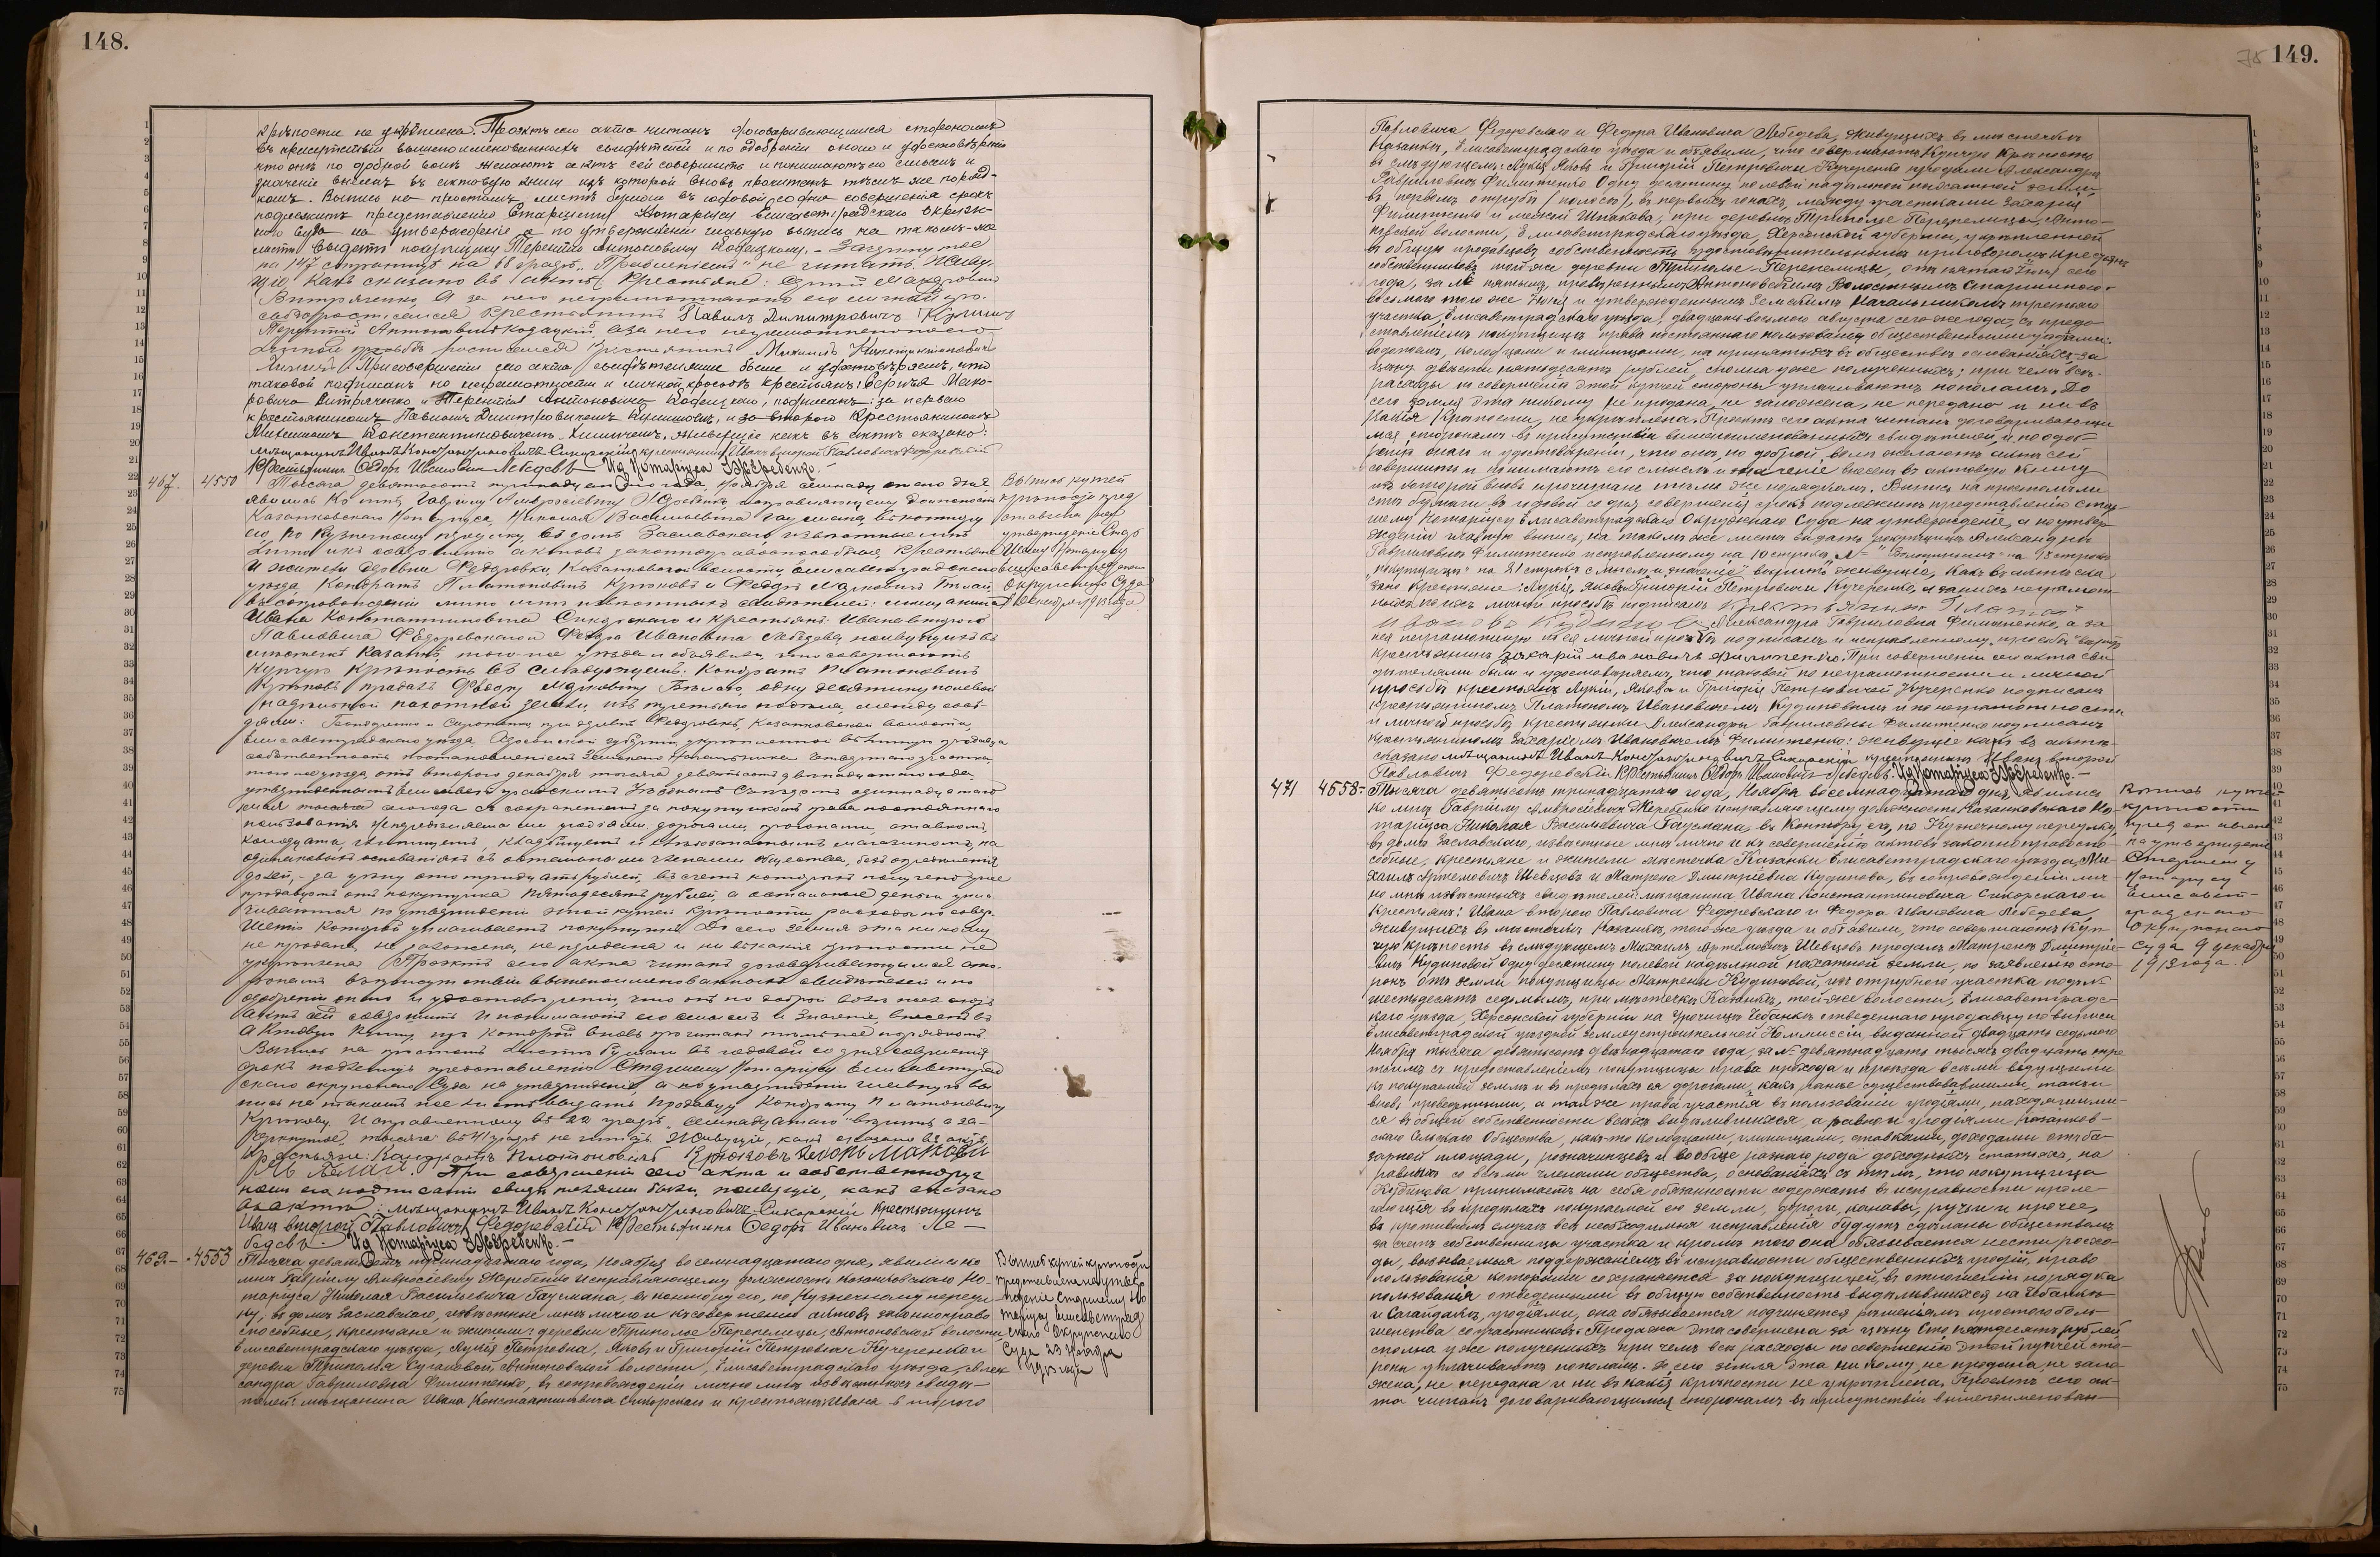 148.
крѣпости не укрѣплена. Проэктъ сего акта читанъ договаривающимся сторонамъ
въ присутствіи вышепоименованныхъ свидѣтелей и по одобреніи онаго и удостовѣреніи
что онѣ по доброй волѣ желаютъ актъ сей совершить и понимаютъ его смыслъ и
значеніе внесенъ въ актовую книгу изъ которой вновь прочитанъ тѣмъ же поряд-
комъ. Выпись на простомъ листѣ бумаги въ годовой со дня совершенія срокъ
подлежитъ представленію Старшему Нотаріусу Елисаветградскаго Окруж-
наго Суда на утвержденіе а по утвержденіи главную выпись на такомъ-же
листѣ выдать покупщику Терентію Антоновичу Кодацкому. – Зачеркнутое
на 147 страницѣ на 68 строкѣ „Правленіемъ" не читать. Живу-
щіе какъ сказано въ актѣ. Крестьяне:
Витряченко, А за него неграмотнаго по его личной про-
сьбѣ росписался крестьянинъ Павелъ Димитровичъ
Терентій Антоновичъ Кодацкій, а за него неграмотнаго по его
личной просьбѣ росписался крестьянинъ Михаилъ Константиновичъ
При совершеніи сего акта свидѣтелями были и удостовѣряемъ, что
таковой подписанъ по неграмотности и личной просьбѣ крестьянъ:
Витряченко и Терентія Антоновича Кодацкаго, подписанъ: за перваго
крестьяниномъ Павломъ Димитровичемъ и за второго крестьяниномъ
Михаиломъ Константиновичемъ живущіе какъ въ актѣ сказано:
мѣщанинъ Иванъ Константиновичъ Сикорскій крестьянинъ Иванъ второй Павловичъ Федоревскій
Крестьянинъ Федоръ Ивановичъ Лебедевъ Ид Нотаріуса Жеребенко. –
467. 4550 Тысяча девятьсотъ тринадцатаго года, Ноября семнадцатаго дня
явились ко мнѣ, Гавріилу Амвросіевичу Жеребенко, исправляющему должность
Казанковскаго Нотаріуса, Николая Васильевича Гаусмана, въ контору
его, по Кузнечному переулку, въ домѣ Заславскаго, извѣстные мнѣ
лично и къ совершенію актовъ законноправоспособные, крестьяне
и жители деревни Федоровки, Казанковской волости, Елисаветградскаго
уѣзда, Кондратъ Платоновичъ Крюковъ и Федоръ Марковичъ Бѣлай,
въ сопровожденіи лично мнѣ извѣстныхъ свидѣтелей: мѣщанина
Ивана Константиновича Сикорскаго и крестьянъ: Ивана второго
Павловича Федоревскаго и Федора Ивановича Лебедева, живущихъ въ
мѣстечкѣ Казанкѣ, того-же уѣзда и объявили, что совершаютъ
купчую крѣпость въ слѣдующемъ: Кондратъ Платоновичъ
Крюковъ продалъ Федору Марковичу Бѣлаю, одну десятину полевой
надѣльной пахотной земли, изъ третьяго надѣла, между сосѣ-
дями: и при деревнѣ Федоровкѣ, Казанковской волости,
Елисаветградскаго уѣзда, Херсонской губерніи, укрѣпленной въ личную продавца
собственность постановленіемъ Земскаго Начальника четвертаго участка,
того же уѣзда, отъ второго декабря тысяча девятьсотъ двѣнадцатаго года,
утвержденнымъ Елисаветградскимъ Уѣзднымъ Съѣздомъ одиннадцатаго
сего года съ сохраненіемъ за покупщикомъ права постояннаго
пользованія неподѣленными угодіями: дорогами, прогонами, ставкомъ,
колодцами, глинищемъ, кладбищемъ и хлѣбозапаснымъ магазиномъ, на
одинаковыхъ основаніяхъ съ остальными членами общества, безъ опредѣленія
долей, – за цѣну сто тридцать рублей, въ счетъ которыхъ получено уже
продавцомъ отъ покупщика пятьдесятъ рублей, а остальныя деньги упла-
чиваются по утвержденіи этой купчей крѣпости, расходы по совер-
шенію которой уплачиваетъ покупщикъ. До сего земля эта никому
не продана, не заложена, не передана и ни въ какія крѣпости не
укрѣплена. Проэктъ сего акта читанъ договаривающимся сто-
ронамъ въ присутствіи вышепоименованныхъ свидѣтелей и по
одобреніи онаго и удостовѣреніи, что онѣ по доброй волѣ желаютъ
актъ сей совершить и понимаютъ его смыслъ и значеніе, внесенъ въ
актовую книгу, изъ которой вновь прочитанъ тѣмъ же порядкомъ.
Выпись на простомъ листѣ бумаги въ годовой со дня совершенія
срокъ подлежитъ представленію Старшему Нотаріусу Елисаветград-
скаго окружнаго Суда на утвержденіе, а по утвержденіи главную вы-
пись на такомъ же листѣ выдать продавцу Кондрату Платоновичу
Крюкову. Исправленному въ 22 строкѣ „семнадцатаго" вѣрить, а за-
черкнутое „тысяча" въ 41 строкѣ не читать. Живущіе, какъ сказано въ актѣ,
Крестьяне: Кондратъ Платоновичъ Крюковъ Федоръ Маркови
чъ Бѣлай. При совершеніи сего акта и собственноруч
номъ его подписаніи свидѣтелями были, живущіе, какъ сказано
въ актѣ: мѣщанинъ Иванъ Константиновичъ Сикорскій Крестьянинъ
Иванъ второй Павловичъ Федоревскій Крестьянинъ Федоръ Ивановичъ Ле-
бедевъ Ид Нотаріуса Жеребенко. –
Выпись купчей
крѣпости пред
ставлена на
утвержденіе Стар
шему Нотаріусу
Елисаветградскаго
Окружнаго Суда
469. – 4553 Тысяча девятьсотъ тринадцатаго года, Ноября восемнадцатаго дня, явились ко
мнѣ Гавріилу Амвросіевичу Жеребенко исправляющему должность Казанковскаго Но-
таріуса Николая Васильевича Гаусмана, въ контору его, по Кузнечному переул-
ку, въ домѣ Заславскаго, извѣстные мнѣ лично и къ совершенію актовъ законноправо-
способные, крестьяне и жители: деревни Триполье Перепелицы, Антоновской волости,
Елисаветградскаго уѣзда, Лукія Петровна, Яковъ и Григорій Петровичи Кучеренко и
деревни Триполья Антоновской волости, Елисаветградскаго уѣзда, Алек
сандра Гавриловна Филипенко, въ сопровожденіи лично мнѣ извѣстныхъ свидѣ-
телей: мѣщанина Ивана Константиновича Сикорскаго и крестьянъ: Ивана второго
Выпись купчей крѣпости
представлена на утвер
жденіе Старшему Но
таріусу Елисаветград
скаго Окружнаго
Суда 23 Ноября
1913 года
149.
Павловича Федоревскаго и Федора Ивановича Лебедева, живущихъ въ мѣстечкѣ
Казанкѣ, Елисаветградскаго уѣзда и объявили, что совершаютъ купчую крѣпость
въ слѣдующемъ: Лукія, Яковъ и Григорій Петровичи Кучеренко продали Александрѣ
Гавриловнѣ Филипенко одну десятину полевой надѣльной пахатной земли,
въ первомъ отрубѣ (полосѣ), въ первыхъ гонахъ, между участками Захарія
Филипенко и межей Шпакова, при деревнѣ Триполье Перепелицы, Анто-
новской волости, Елисаветградскаго уѣзда, Херсонской губерніи, укрѣпленной
въ общую продавцовъ собственность удостовѣрительнымъ приговоромъ крестьянъ
собственниковъ той же деревни Триполье-Перепелицы, отъ пятаго Іюля сего
года, за № пятымъ, провѣреннымъ Антоновскимъ Волостнымъ Старшиною
восьмого того же Іюля и утвержденнымъ Земскимъ Начальникомъ третьяго
участка, Елисаветградскаго уѣзда, двадцать восьмого августа сего же года, съ предо-
ставленіемъ покупщицѣ права постояннаго пользованія общественными угодіями:
водопоемъ, колодцами и глинищами, на принятыхъ въ обществѣ основаніяхъ – за
цѣну двѣсти пятьдесятъ рублей, сполна уже полученныхъ; при чемъ всѣ
расходы по совершенію этой купчей стороны уплачиваютъ пополамъ. До
сего земля эта никому не продана, не заложена, не передана и ни въ
какія крѣпости, не укрѣплена. Проэктъ сего акта читанъ договаривающи
мся сторонамъ въ присутствіи вышепоименованныхъ свидѣтелей, и по одоб-
реніи онаго и удостовѣреніи, что онѣ, по доброй волѣ желаютъ актъ сей
совершить и понимаютъ его смыслъ и значеніе внесенъ въ актовую книгу
изъ которой вновь прочитанъ тѣмъ же порядкомъ. Выпись на простомъ ли
стѣ бумаги въ годовой со дня совершенія срокъ подлежитъ представленію Стар-
шему Нотаріусу Елисаветградскаго Окружнаго Суда на утвержденіе, а по утвер-
жденіи главную выпись, на такомъ же листѣ выдать покупщицѣ Александрѣ
Гавриловнѣ Филипенко исправленному на 10 строкѣ „№" на 13 строкѣ
„покупщицѣ" на 21 строкѣ „смыслъ и значеніе" вѣрить. Живущіе, какъ въ актѣ ска
зано крестьяне: Лукія, Яковъ и Григорій Петровичи Кучеренко, а за нихъ неграмот-
ныхъ по ихъ личной просьбѣ подписалъ Крестьянинъ Платонъ
Ивановъ Кудиновъ, Александра Гавриловна Филипенко, а за
нея неграмотную по ея личной просьбѣ подписалъ и исправленному „просьбѣ" вѣрить
крестьянинъ Захарій Ивановичъ Филипенко. При совершеніи сего акта сви
дѣтелями были и удостовѣряемъ, что таковой по неграмотности и личной
просьбѣ крестьянъ Лукіи, Якова и Григорія Петровичей Кучеренко подписанъ
крестьяниномъ Платономъ Ивановичемъ Кудиновымъ и по неграмотности
и личной просьбѣ крестьянки Александры Гавриловны Филипенко подписанъ
крестьяниномъ Захаріемъ Ивановичемъ Филипенко: живущіе какъ въ актѣ
сказано мѣщанинъ Иванъ Константиновичъ Сикорскій крестьянинъ Иванъ второй
Павловичъ Федоревскій Крестьянинъ Федоръ Ивановичъ Лебедевъ. Ид Нотаріуса Жеребенко. –
471 4558 – Тысяча девятьсотъ тринадцатаго года, Ноября восемнадцатаго дня, явились
ко мнѣ Гавріилу Амвросіевичу Жеребенко исправляющему должность Казанковскаго Но-
таріуса Николая Васильевича Гаусмана, въ контору его, по Кузнечному переулку,
въ домѣ Заславскаго, извѣстные мнѣ лично и къ совершенію актовъ законноправоспо-
собные, крестьяне и жители мѣстечка Казанки Елисаветградскаго уѣзда, Ми-
хаилъ Артемовичъ Шевцовъ и Матрена Дмитріевна Кудинова, въ сопровожденіи лич-
но мнѣ извѣстныхъ свидѣтелей: мѣщанина Ивана Константиновича Сикорскаго и
крестьянъ: Ивана второго Павловича Федоревскаго и Федора Ивановича Лебедева,
живущихъ въ мѣстечкѣ Казанкѣ, того же уѣзда и объявили, что совершаютъ Куп-
чую крѣпость въ слѣдующемъ: Михаилъ Артемовичъ Шевцовъ продалъ Матренѣ Дмитріе
внѣ Кудиновой одну десятину полевой надѣльной пахатной земли, по заявленію сто-
ронъ отъ земли покупщицы Матрены Кудиновой, изъ отрубного участка подъ №
шестьдесятъ седьмымъ, при мѣстечкѣ Казанкѣ, той же волости, Елисаветградс-
каго уѣзда, Херсонской губерніи на урочищѣ Чебанкѣ отведеннаго продавцу по выписи
Елисаветградской уѣздной землеустроительной Коммиссіи, выданной двадцать седьмого
Ноября тысяча девятьсотъ двѣнадцатаго года, за № девятнадцать тысячъ двадцать тре
тьимъ съ предоставленіемъ покупщицѣ права прохода и проѣзда всѣми ведущими
къ покупаемой землѣ и въ предѣлахъ ея дорогами, какъ ранѣе существовавшими, такъ и
вновь проведенными, а также права участія въ пользованіи угодьями, находящими-
ся въ общей собственности всѣхъ выдѣлившихся, а равно и угодьями Казанков-
скаго Сельскаго Общества, какъ-то колодцами, глинищами, ставками, доходами отъ ба-
зарной площади, розничницевъ и вообще разнаго рода доходныхъ статьяхъ, на
равныхъ со всѣми членами общества, основаніяхъ съ тѣмъ, что покупщица
Кудинова принимаетъ на себя обязанности содержать въ исправности проле-
гающія въ предѣлахъ покупаемой ею земли, дороги, канавы, ручьи и прочее,
въ противномъ случаѣ всѣ необходимыя исправленія будутъ сдѣланы обществомъ
за счетъ собственницы участка и кромѣ того она обязывается нести расхо-
ды, вызываемые поддержаніемъ въ исправности общественныхъ угодій, право
пользованія которыми сохраняется за покупщицей, въ отношеніи порядка
пользованія отведенными въ общую собственность выдѣлившихся на Чебанкѣ
и Сагайдакѣ, угодіями, она обязывается подчиняться рѣшеніямъ простого боль-
шинства соучастниковъ. Продажа эта совершена за цѣну сто пятьдесятъ рублей,
сполна уже полученныхъ при чемъ всѣ расходы по совершенію этой купчей сто-
роны уплачиваютъ пополамъ. До сего земля эта никому, не продана, не зало-
жена, не передана и ни въ какія крѣпости не укрѣплена. Проэктъ сего ак-
та читанъ договаривающимся сторонамъ въ присутствіи вышепоименован-
Выпись купчей
крѣпости
представлена
на утвержденіе
Старшему
Нотаріусу
Елисавет-
градскаго
Окружнаго
Суда 9 декабря
1913 года.